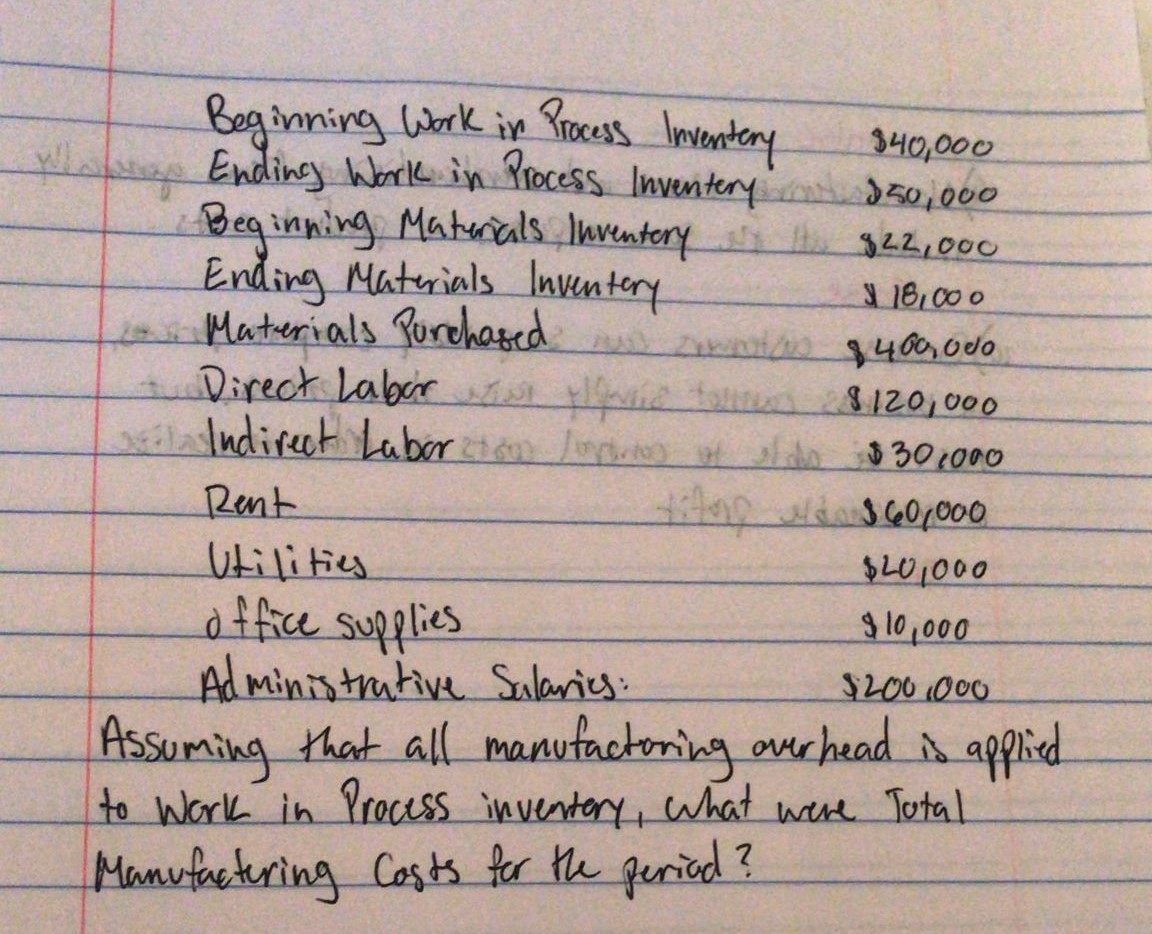 Beginning Work in Process Inventory $40,000
Ending Work in Process Inventory $50,000
Beginning Materials Inventory $22,000
Ending Materials Inventory $18,000
Materials Purchased $400,000
Direct Labor $120,000
Indirect Labor $30,000
Rent $60,000
Utilities $20,000
office supplies $10,000
Administrative Salaries: $200,000
Assuming that all manufactoring overhead is applied
to Work in Process inventory, what were Total
Manufactering Costs for the period?